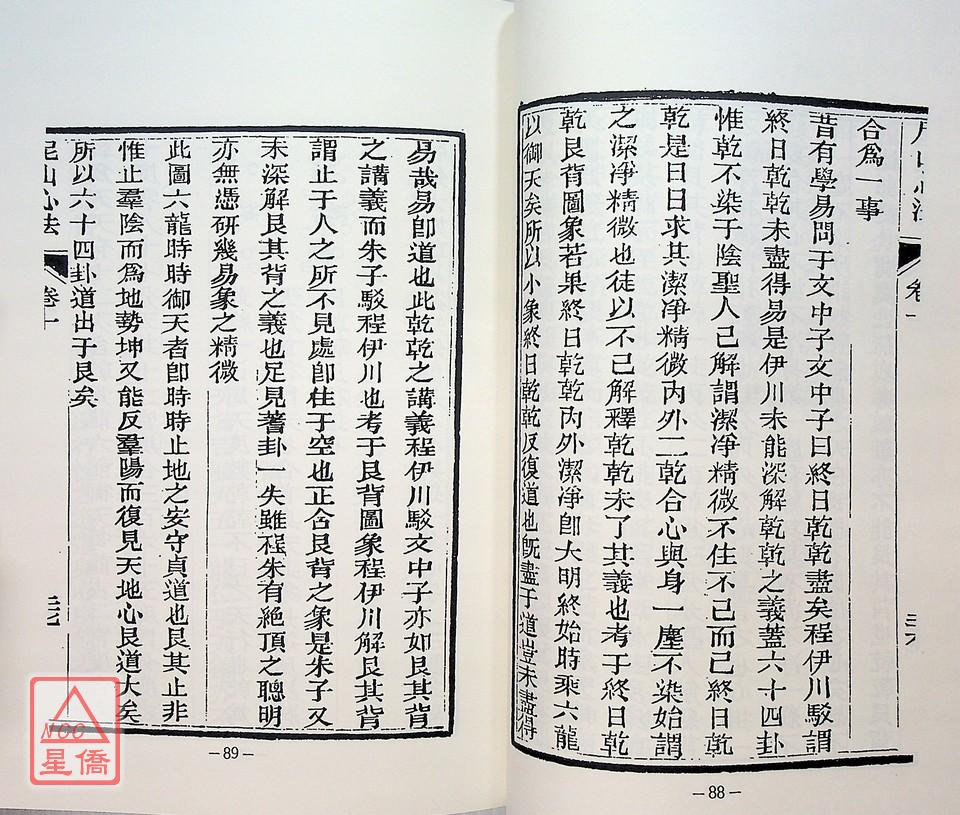 合爲一事
昔有學易問于文中子文中子曰終日乾乾盡矣程伊川駁謂
終日乾乾未盡得易是伊川未能深解乾乾之義蓋六十四卦
惟乾不染于陰聖人已解謂潔淨精微不住不已而已終日乾
乾是日日求其潔淨精微內外二乾合心與身一塵不染始謂
之潔淨精微也徒以不已解釋乾乾未了其義也考于終日乾
乾艮背圖象若果終日乾乾內外潔淨卽大明終始時乘六龍
以御天矣所以小象終日乾乾反復道也旣盡于道豈未盡得
卷一
三六
—88—
易哉易卽道也此乾乾之講義程伊川駁文中子亦如艮其背
之講義而朱子駁程伊川也考于艮背圖象程伊川解艮其背
謂止于人之所不見處卽住于空也正合艮背之象是朱子又
未深解艮其背之義也足見蓍卦一失雖程朱有絕頂之聰明
亦無憑研幾易象之精微
此圖六龍時時御天者卽時時止地之安守貞道也艮其止非
惟止羣陰而爲地勢坤又能反羣陽而復見天地心艮道大矣
所以六十四卦道出于艮矣
尼山心法
卷一
三七
—89—
NCC
星僑